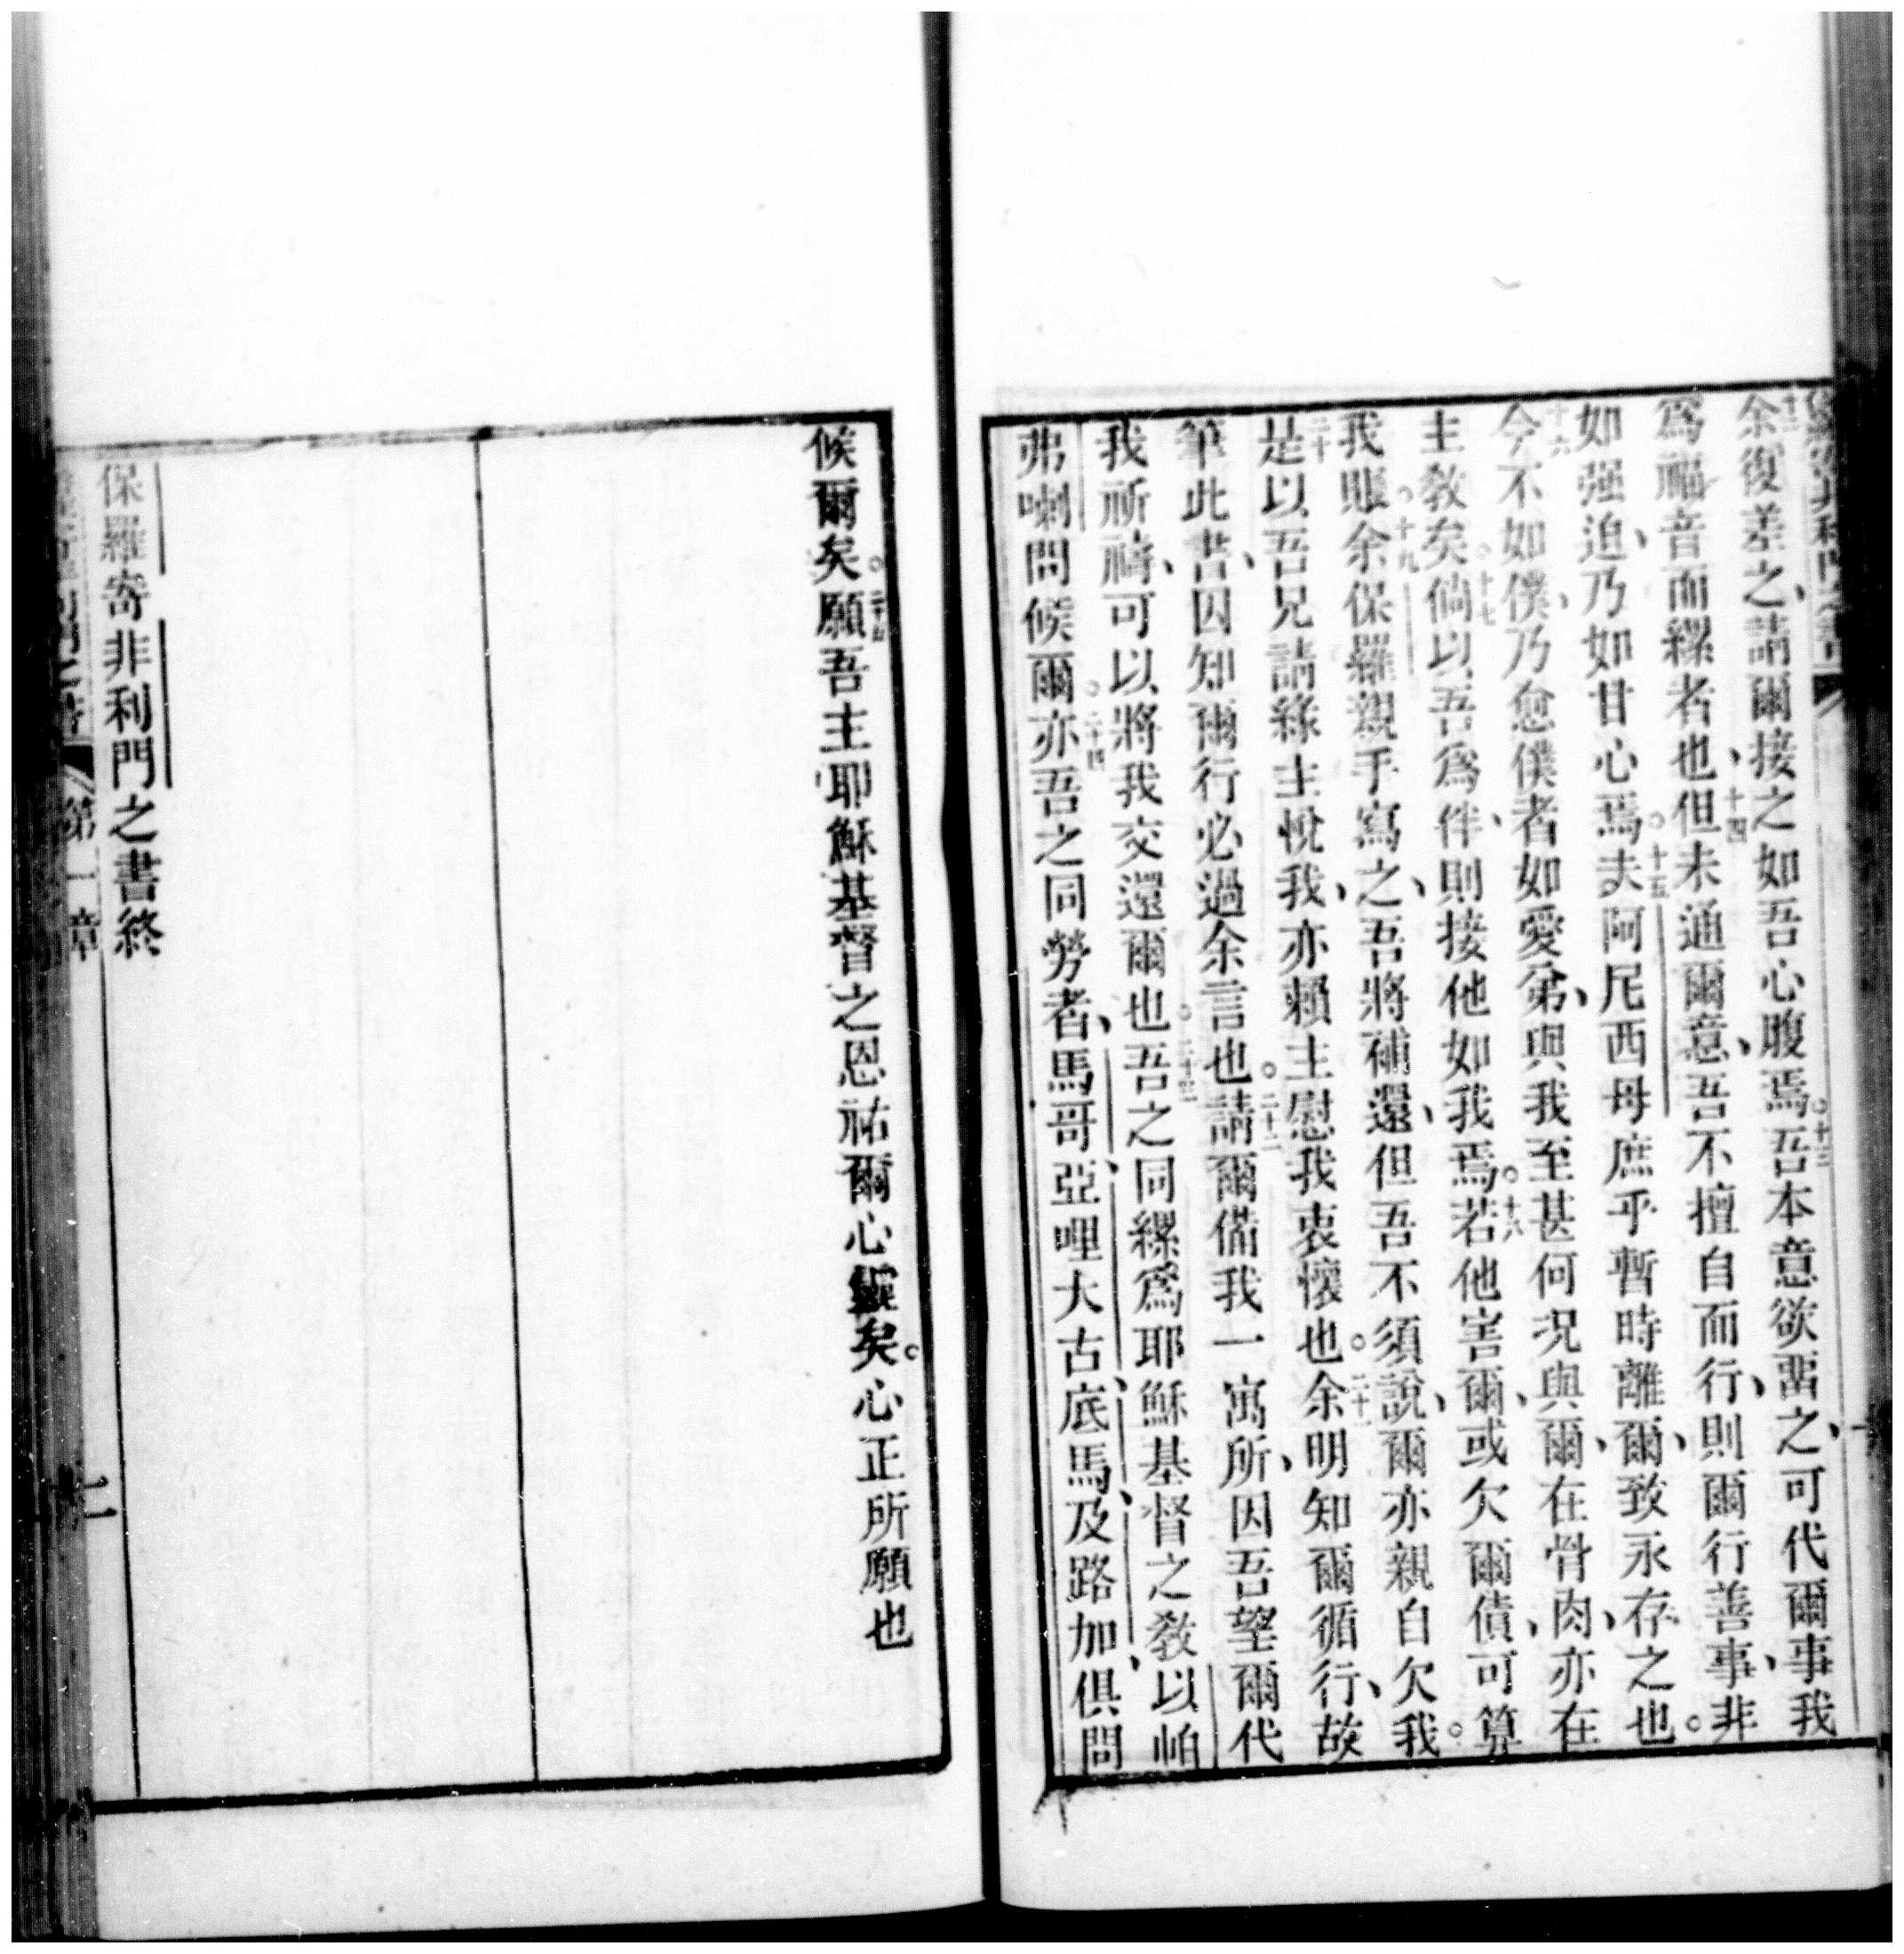 十二余復差之、請爾接之如吾心腹焉。十三吾本意欲畱之、可代爾事我
爲福音而縲者也、十四但未通爾意、吾不擅自而行、則爾行善事、非
如强迫、乃如甘心焉。十五夫阿尼西母庶乎暫時離爾、致永存之也。
十六今不如僕、乃愈僕者如愛弟、與我至甚何况與爾、在骨肉、亦在
主敎矣。十七倘以吾爲伴、則接他如我焉。十八若他害爾、或欠爾債、可算
我賬。十九余保羅親手寫之、吾將補還、但吾不須說、爾亦親自欠我。
二十是以吾兄請緣主悅我、亦賴主慰我衷懷也。二十一余明知爾循行、故
筆此書、因知爾行必過余言也。二十二請爾備我一寓所、因吾望爾代
我祈禱、可以將我交還爾也。二十三吾之同縲爲耶穌基督之敎以帕
弗喇問候爾。二十四亦吾之同勞者、馬哥、亞哩大古、底馬、及路加、俱問
候爾矣。二十五願吾主耶穌基督之恩祐爾心靈矣。心正所願也
保羅寄非利門之書終
第一章
二